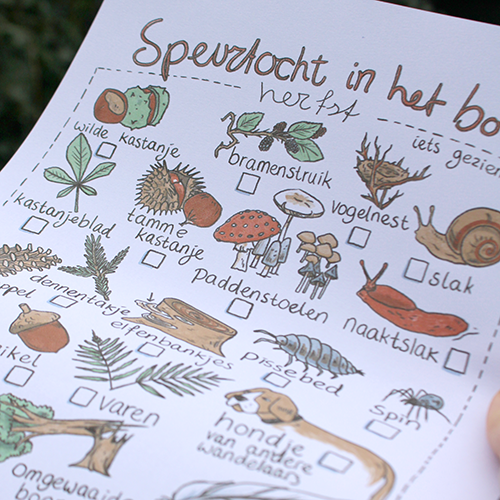 Speurtocht in het bo
herfst
iets gezien
wilde kastanje
bramenstruik
vogelnest
slak
kastanjeblad
tamme
kastanje
paddenstoelen
naaktslak
dennentakje
ppel
elfenbankjes
pissebed
spin
eikel
varen
hondje
van andere
wandelaars
Omgewaaide
boom